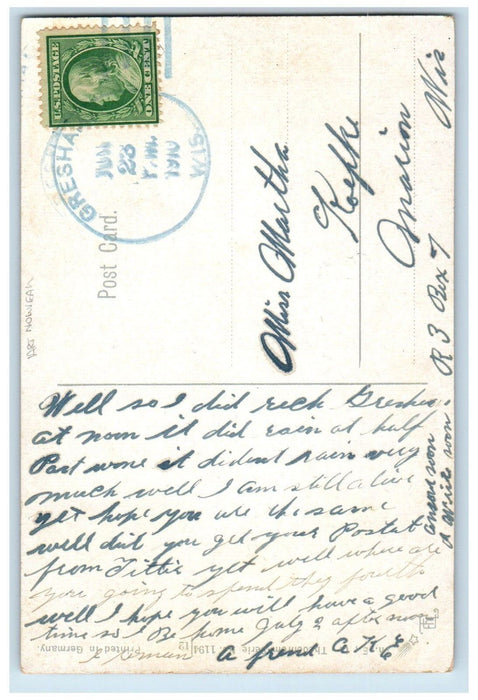 U.S. POSTAGE
ONE CENT
GRESHAM
JUN
23
P.M.
1910
WIS.
Post Card.
Miss Martha
Koepke
Marion Wis
R 3 Box 7
Well so I did rech Gresham
at noon it did rain at half
Past wone it dident rain very
much well I am still alive
yet hope you are the same
well did you get your Postal
from Tittie yet well where are
you going to spend they fourth
well I hope you will have a good
time so I Be home July 2 after noon
a frend A K
ansore soon
Write soon
1194
Printed in Germany